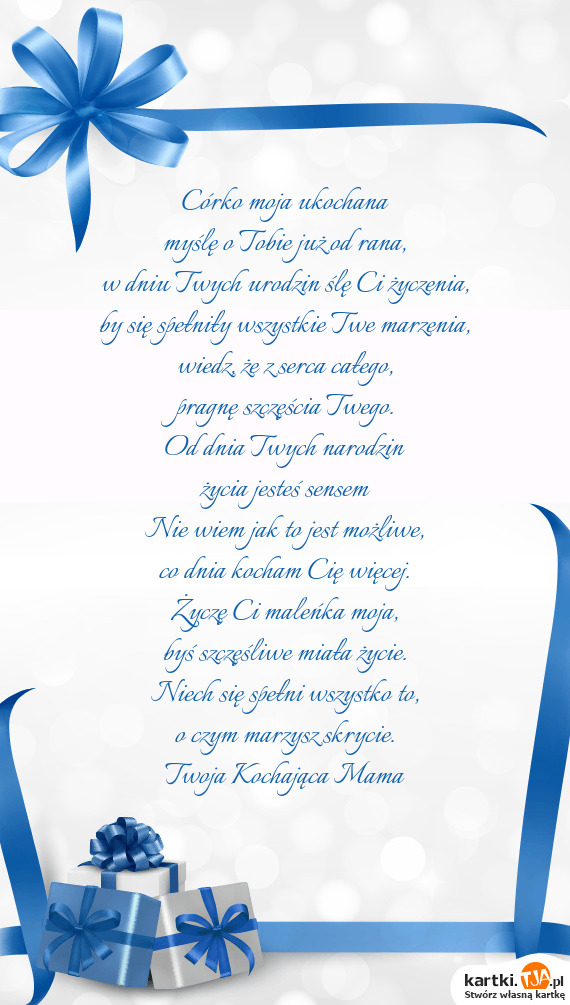 Córko moja ukochana
myślę o Tobie już od rana,
w dniu Twych urodzin ślę Ci życzenia,
by się spełniły wszystkie Twe marzenia,
wiedz, że z serca całego,
pragnę szczęścia Twego.
Od dnia Twych narodzin
życia jesteś sensem
Nie wiem jak to jest możliwe,
co dnia kocham Cię więcej.
Życzę Ci maleńka moja,
byś szczęśliwe miała życie.
Niech się spełni wszystko to,
o czym marzysz skrycie.
Twoja Kochająca Mama
kartki.TJA.pl
Stwórz własną kartkę